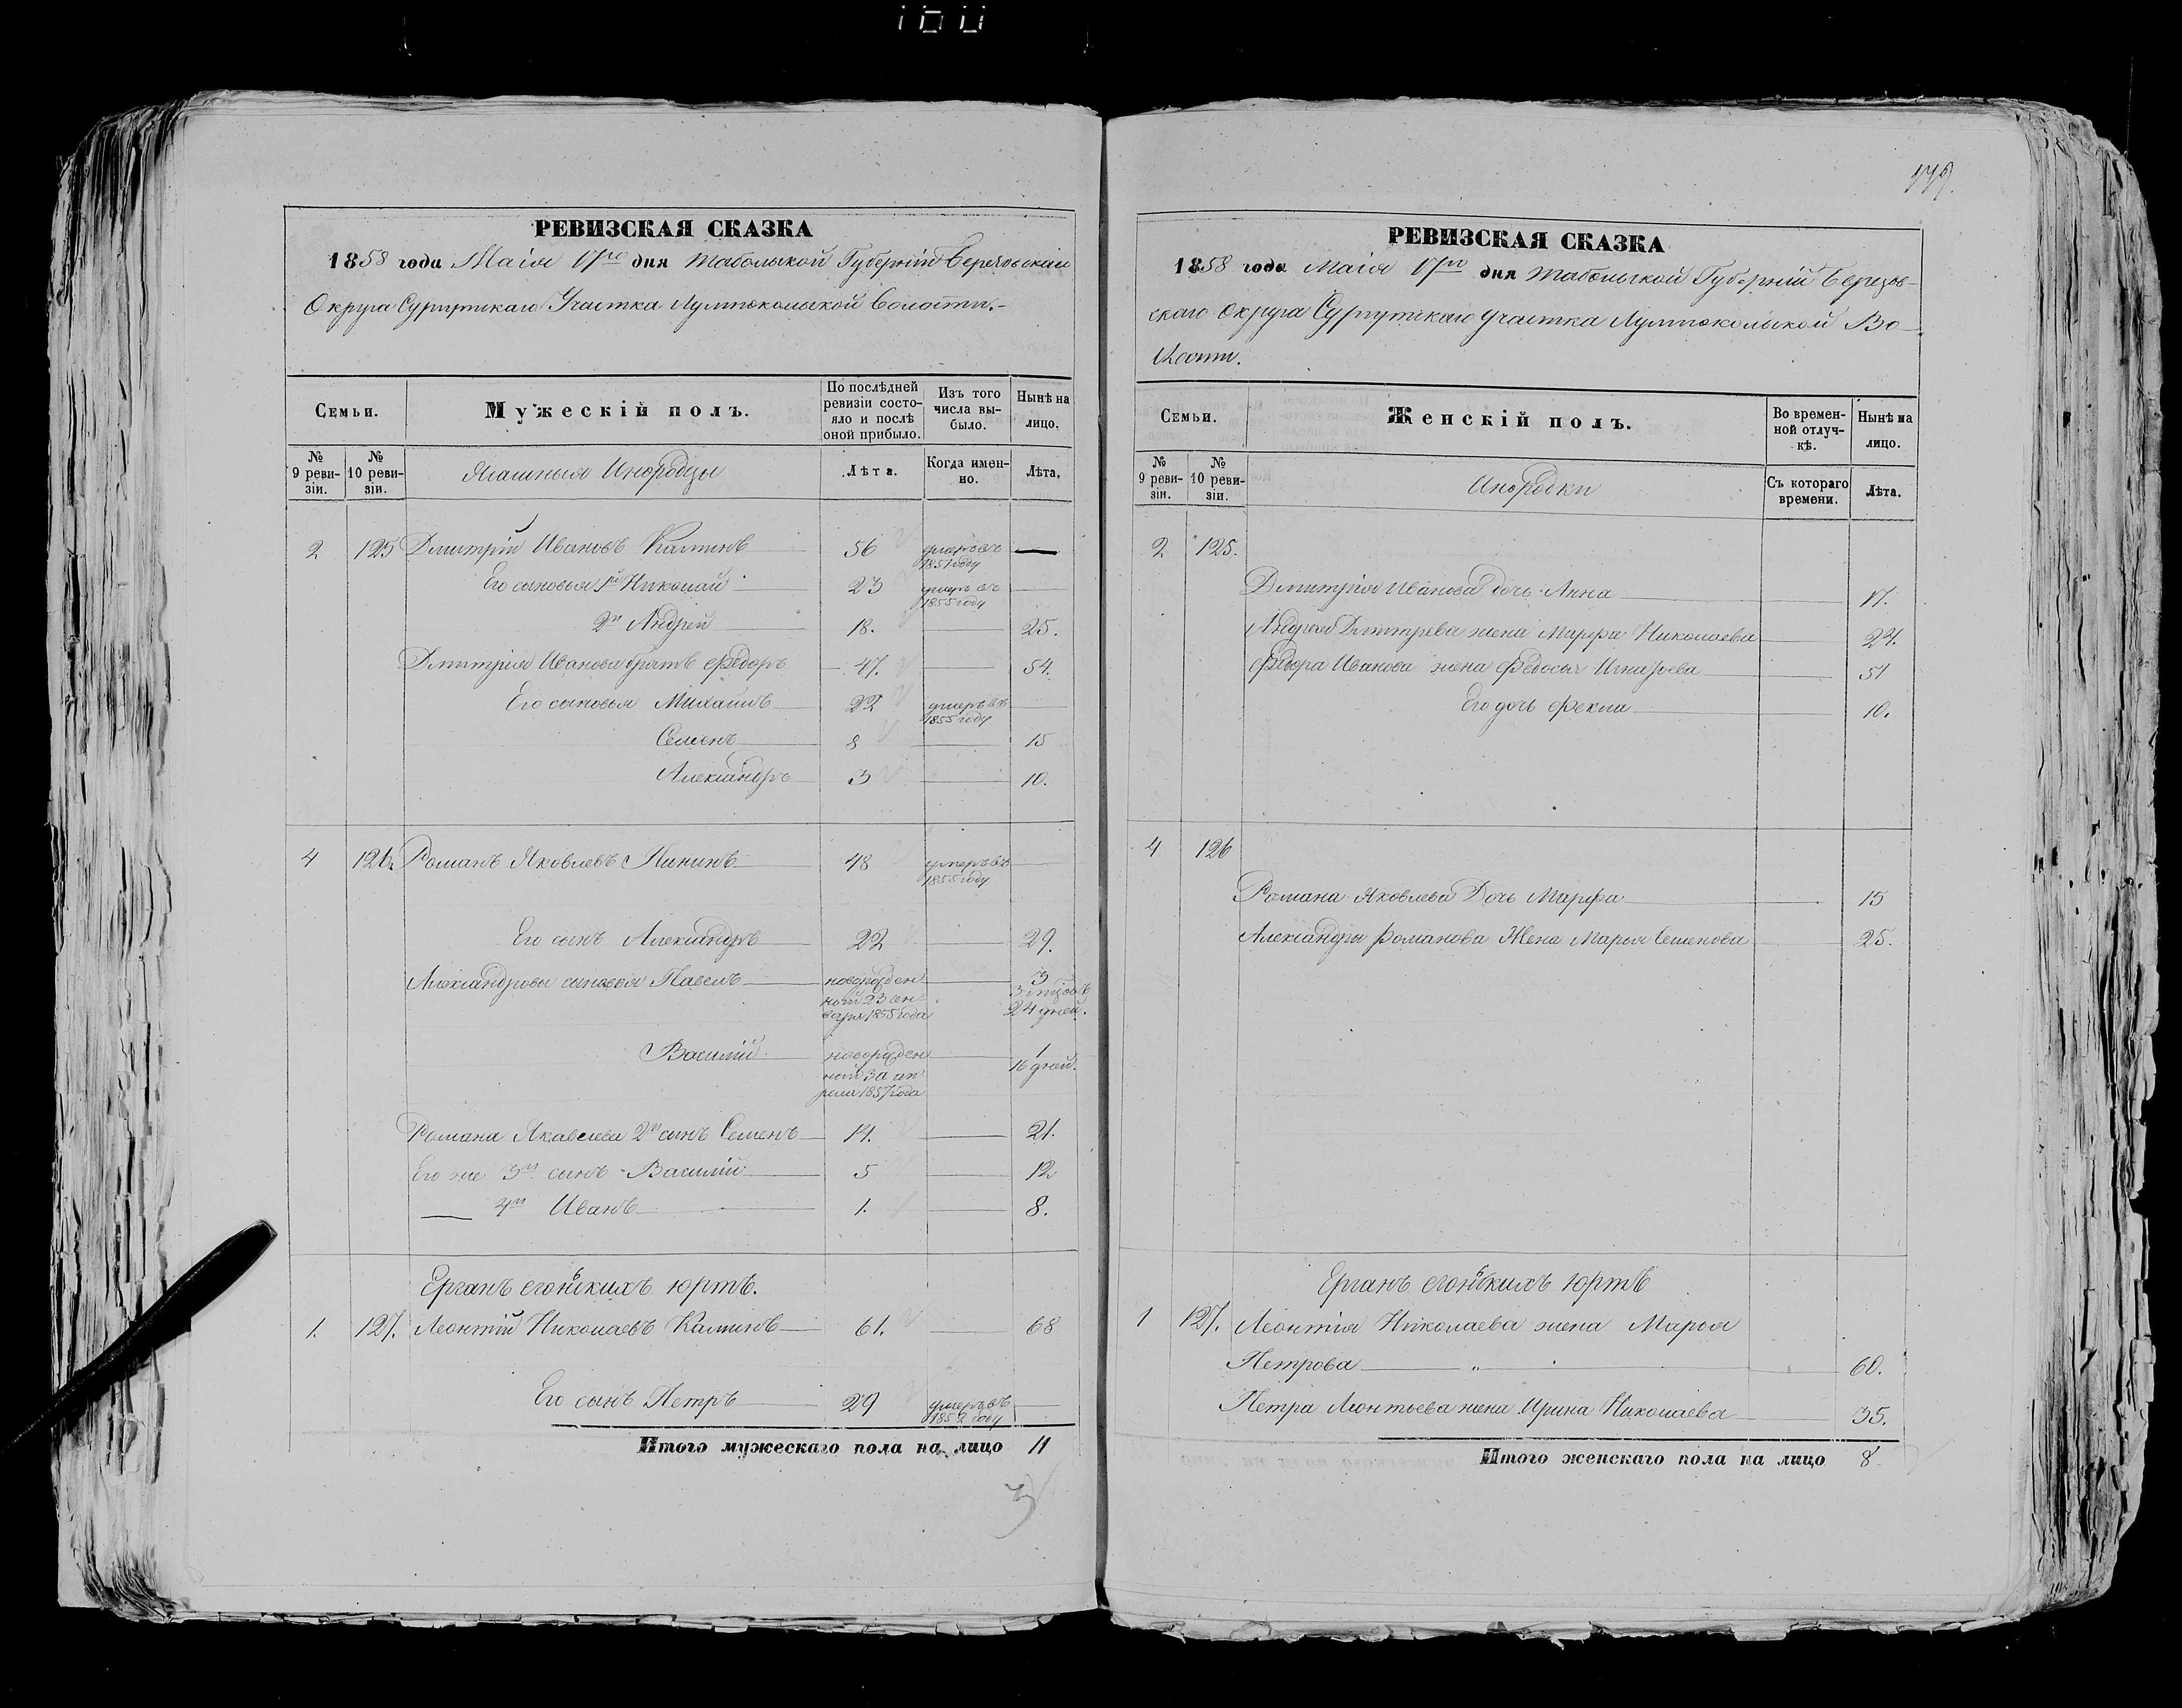 160
РЕВИЗСКАЯ СКАЗКА
1858 года Маія 17го дня Табольской Губерніи Березовскаи
Округа Сургутскаго Участка Лумпокольской Волости.-
Семьи.
Мужескій полъ.
По послѣдней ревизіи состо-яло и послѣ оной прибыло.
Изъ того числа вы-было.
Нынѣ на лицо.
№ 9 реви-зіи.
№ 10 реви-зіи.
Ясашныя Инородцы
Лѣта.
Когда имен-но.
Лѣта.
2 125 Дмитрій Ивановъ Калинъ 56 умеръ въ 1851 году —
Его сыновья 1й Николай 23 умеръ въ 1855 году
2й Андрей 18. 25.
Дмитрія Иванова братъ Федоръ 47. 54.
Его сыновья Михаилъ 22 умеръ въ 1855 году
Семенъ 8 15
Александръ 3 10.
4 126. Романъ Яковлевъ Нининъ 48 умеръ въ 1855 году
Его сынъ Александръ 22 29.
Александровы сыновья Павелъ новорожден
ный 23 ян
варя 1855 года
3
3 мцовъ
24 дней.
Василій новорожден
ный 30 ап
реля 1857 года
1
16 дней.
Романа Якавлева 2й сынъ Семенъ 14. 21.
Его же 3й сынъ Василій 5 12
— 4й Иванъ 1. 8.
Ерганъ егонскихъ юртъ.
1. 127. Леонтій Николаевъ Калинъ 61. 68
Его сынъ Петръ 29 умеръ въ 1852 году
Итого мужескаго пола на лицо 11
РЕВИЗСКАЯ СКАЗКА
1858 года Маія 17го дня Табольской Губерній Березов-
скаго Округа Сургутскаго Участка Лумпокольской Во-
лости.
Семьи.
Женскій полъ.
Во времен-ной отлуч-кѣ.
Нынѣ на лицо.
№ 9 реви-зіи.
№ 10 реви-зіи.
Инородки
Съ котораго времени.
Лѣта.
2 125.
Дмитрія Иванова дочь Анна 17.
Андрея Дмитрева жена Марфа Николаева 24.
Федора Иванова жена Федосья Игнатьева 51
Его дочь Фекла 10.
4 126
Романа Яковлева Дочь Марфа 15
Александры Романова Жена Марья Семенова 25.
Ерганъ егонскихъ юртъ
1 127. Леонтія Николаева жена Марья
Петрова 60.
Петра Леонтьева жена Ирина Николаева 35.
Итого женскаго пола на лицо 8